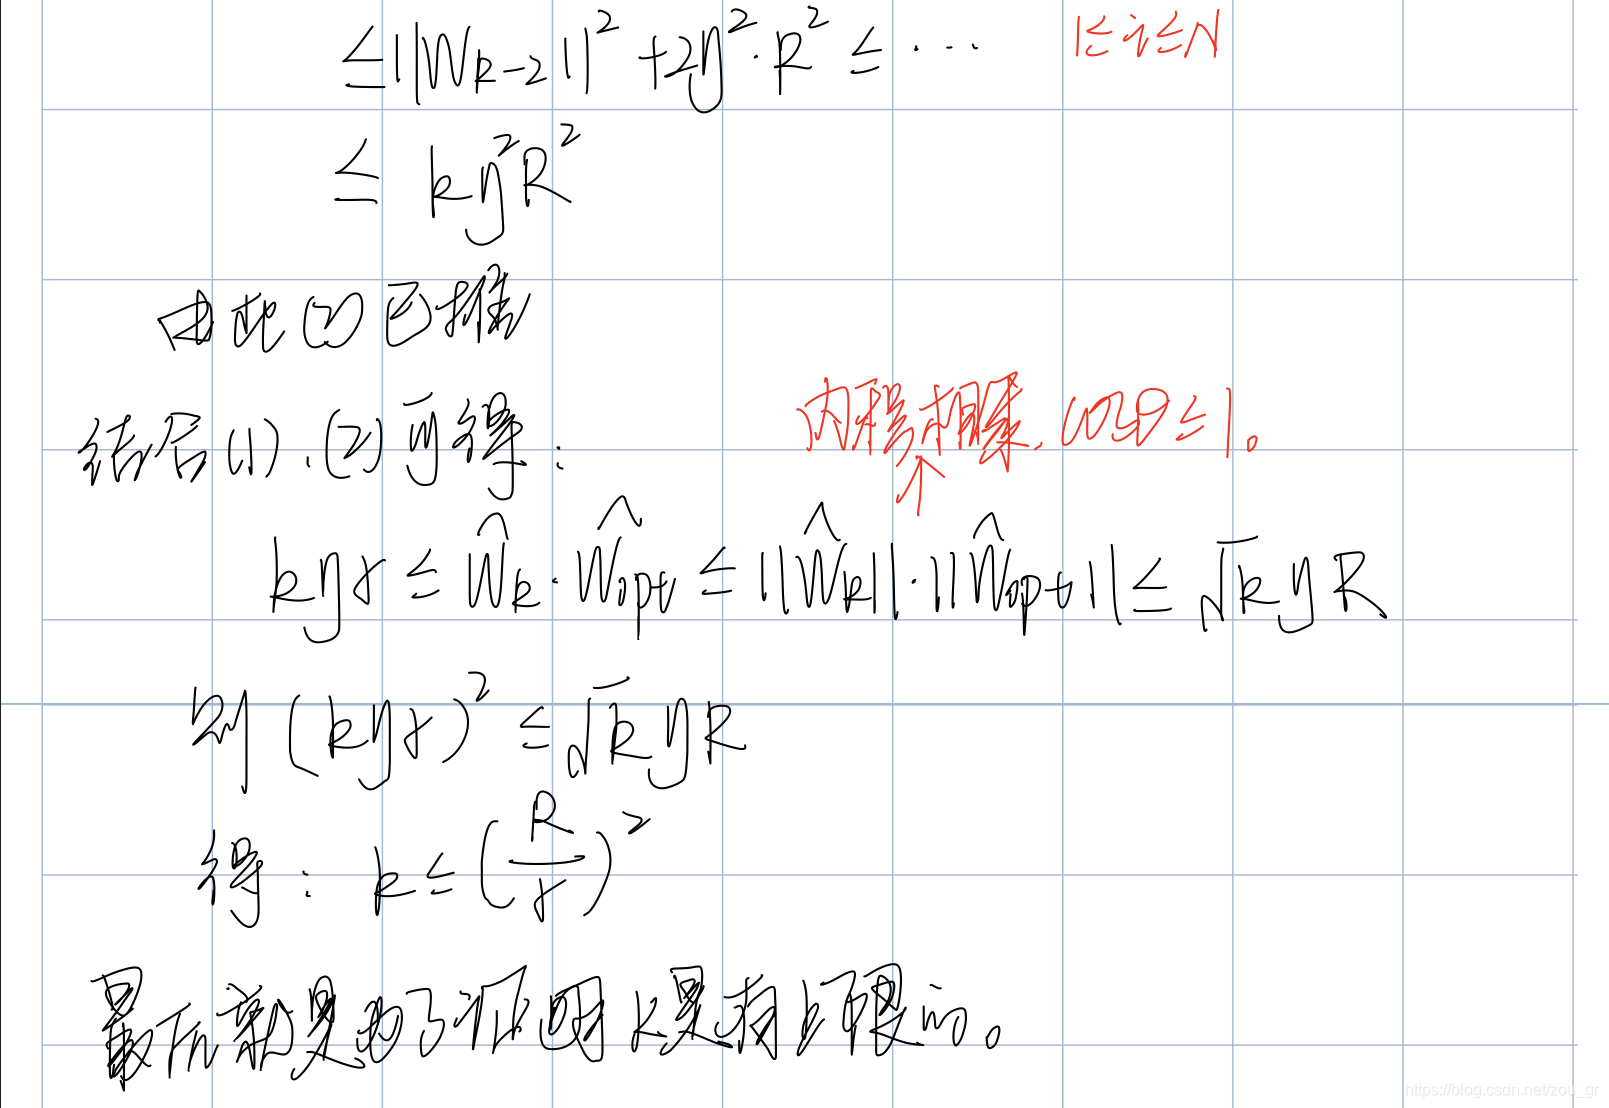 ≤||W_{k-2}||² + 2η²·R² ≤ ··· 1≤i≤N
≤ kη²R²
由此(2)已推
结合(1)、(2)可得:
内积相乘,cosθ≤1。
↑
kηγ ≤ Ŵ_k·Ŵ_opt ≤ ||Ŵ_k||·||Ŵ_opt|| ≤ √k ηR
则 (kηγ)² ≤ √k ηR
得: k ≤ (R/γ)²
最后就是为了证明k是有上限的。
https://blog.csdn.net/zou_gr